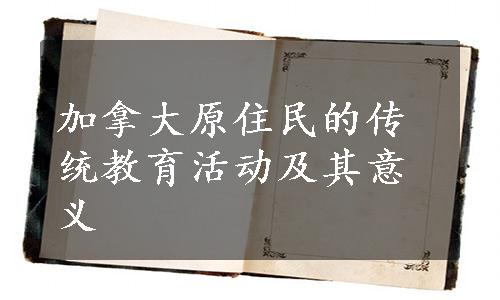 加拿大原住民的传
统教育活动及其意
义